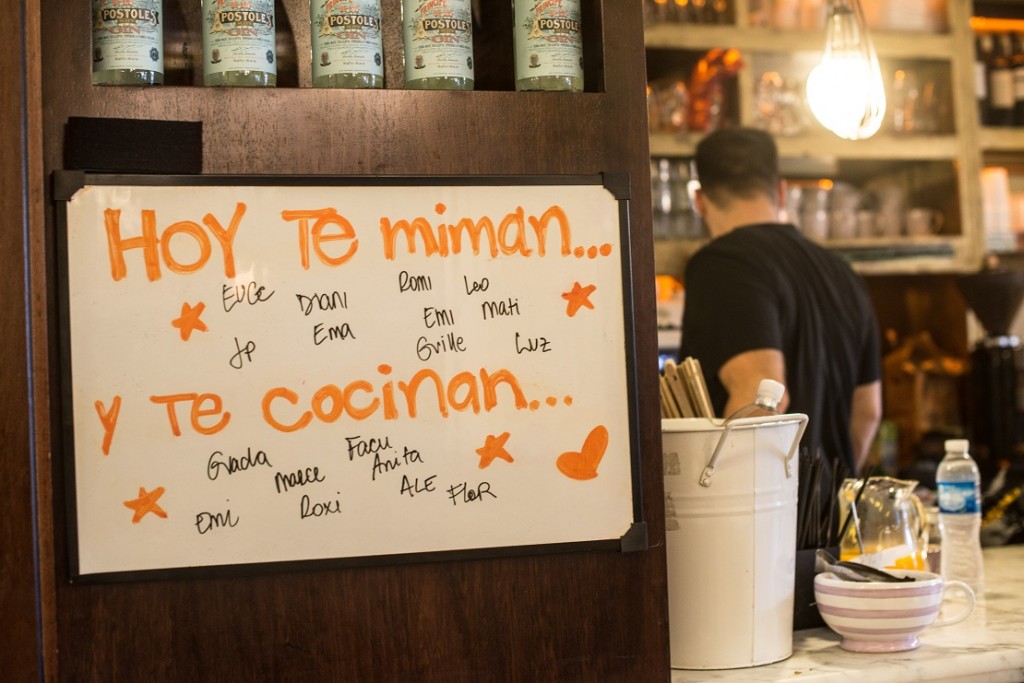 POSTOLES POSTOLES POSTOLES POSTOLES POSTOLES
GIN GIN GIN GIN GIN
HOY TE miman...
EUGE DIANI ROMI Leo
EMA EMI MATI
JP Guille LUZ
Y Te cocinan...
Giada Marce Facu
Anita
EMI Roxi ALE FLOR